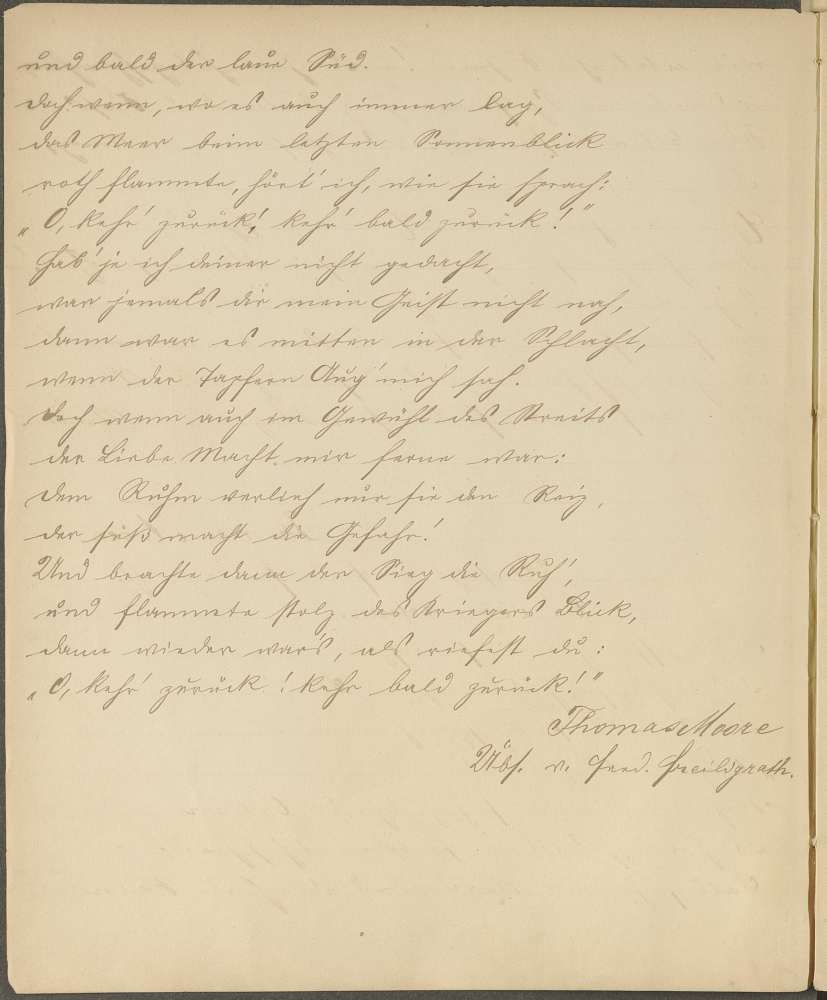 und bald der laue Süd.
Doch wenn, wo es auch immer lag,
das Meer beim letzten Sonnenblick
roth flammte, hört' ich, wie sie sprach:
„O, kehr' zurück! kehr' bald zurück!"
Hab' je ich deiner nicht gedacht,
war jemals dir mein Geist nicht nah,
dann war es mitten in der Schlacht,
wenn der Tapfern Aug' mich sah.
Doch wenn auch im Gewühl des Streits
der Liebe Macht mir ferne war:
dem Ruhm verlieh nur sie den Reiz,
der süß macht die Gefahr!
Und brachte dann der Sieg die Ruh',
und flammete stolz des Kriegers Blick,
dann wieder war's, als riefest du:
„O, kehr' zurück! kehr bald zurück!"
Thomas Moore
Übs. v. Ferd. Freiligrath.